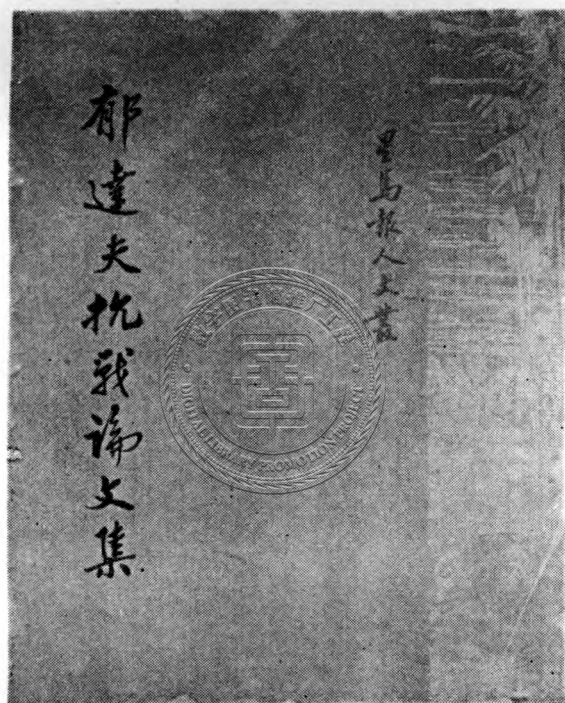 星馬報人文叢
郁達夫抗戰論文集
数字图书馆推广工程
DIGITAL LIBRARY PROMOTION PROJECT